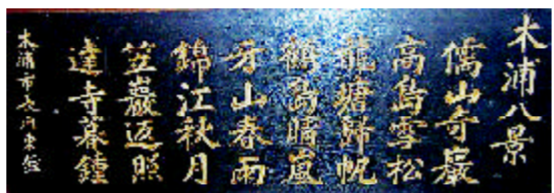 木浦八景
儒山奇巖
高島雪松
龍塘歸帆
鶴島晴嵐
牙山春雨
錦江秋月
笠巖返照
達寺暮鍾
木浦市